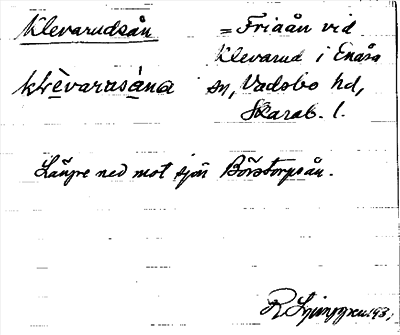 Klevarudsån = Friaån vid
Klevarud i Enåsa
sn, Vadsbo hd,
Skarab. l.
Längre ned mot sjön Börstorpsån.
R Ljunggren